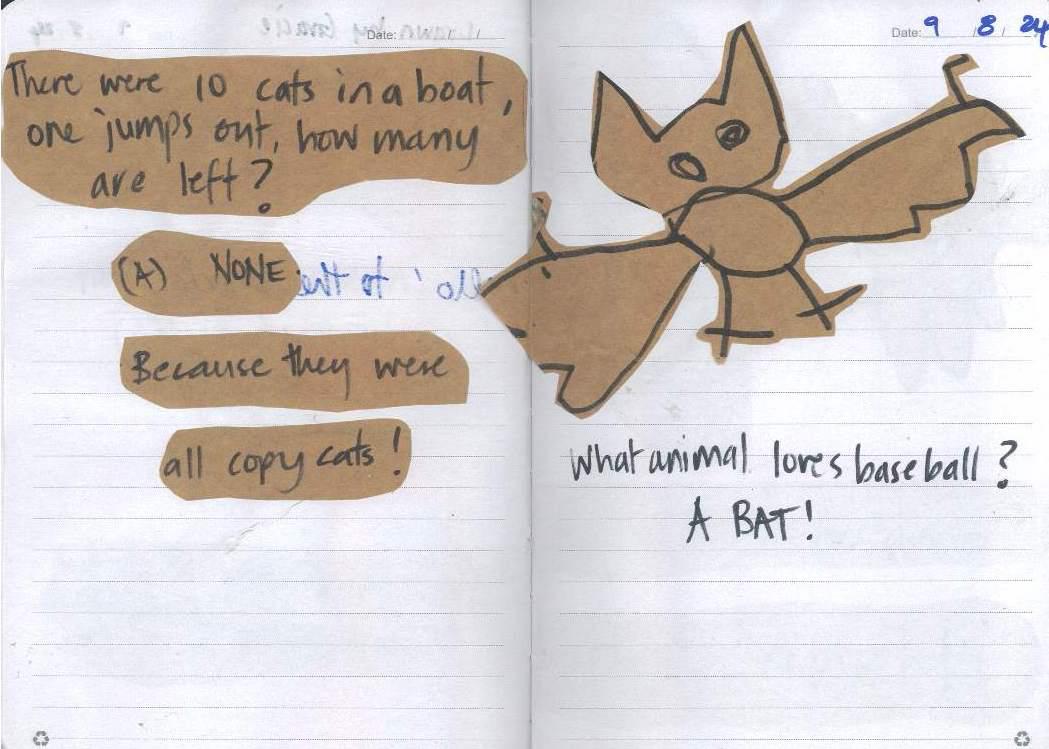 Date: / /
There were 10 cats in a boat,
one jumps out, how many
are left?
(A) NONE
Because they were
all copy cats!
Date: 9 / 8 / 24
What animal loves baseball?
A BAT!